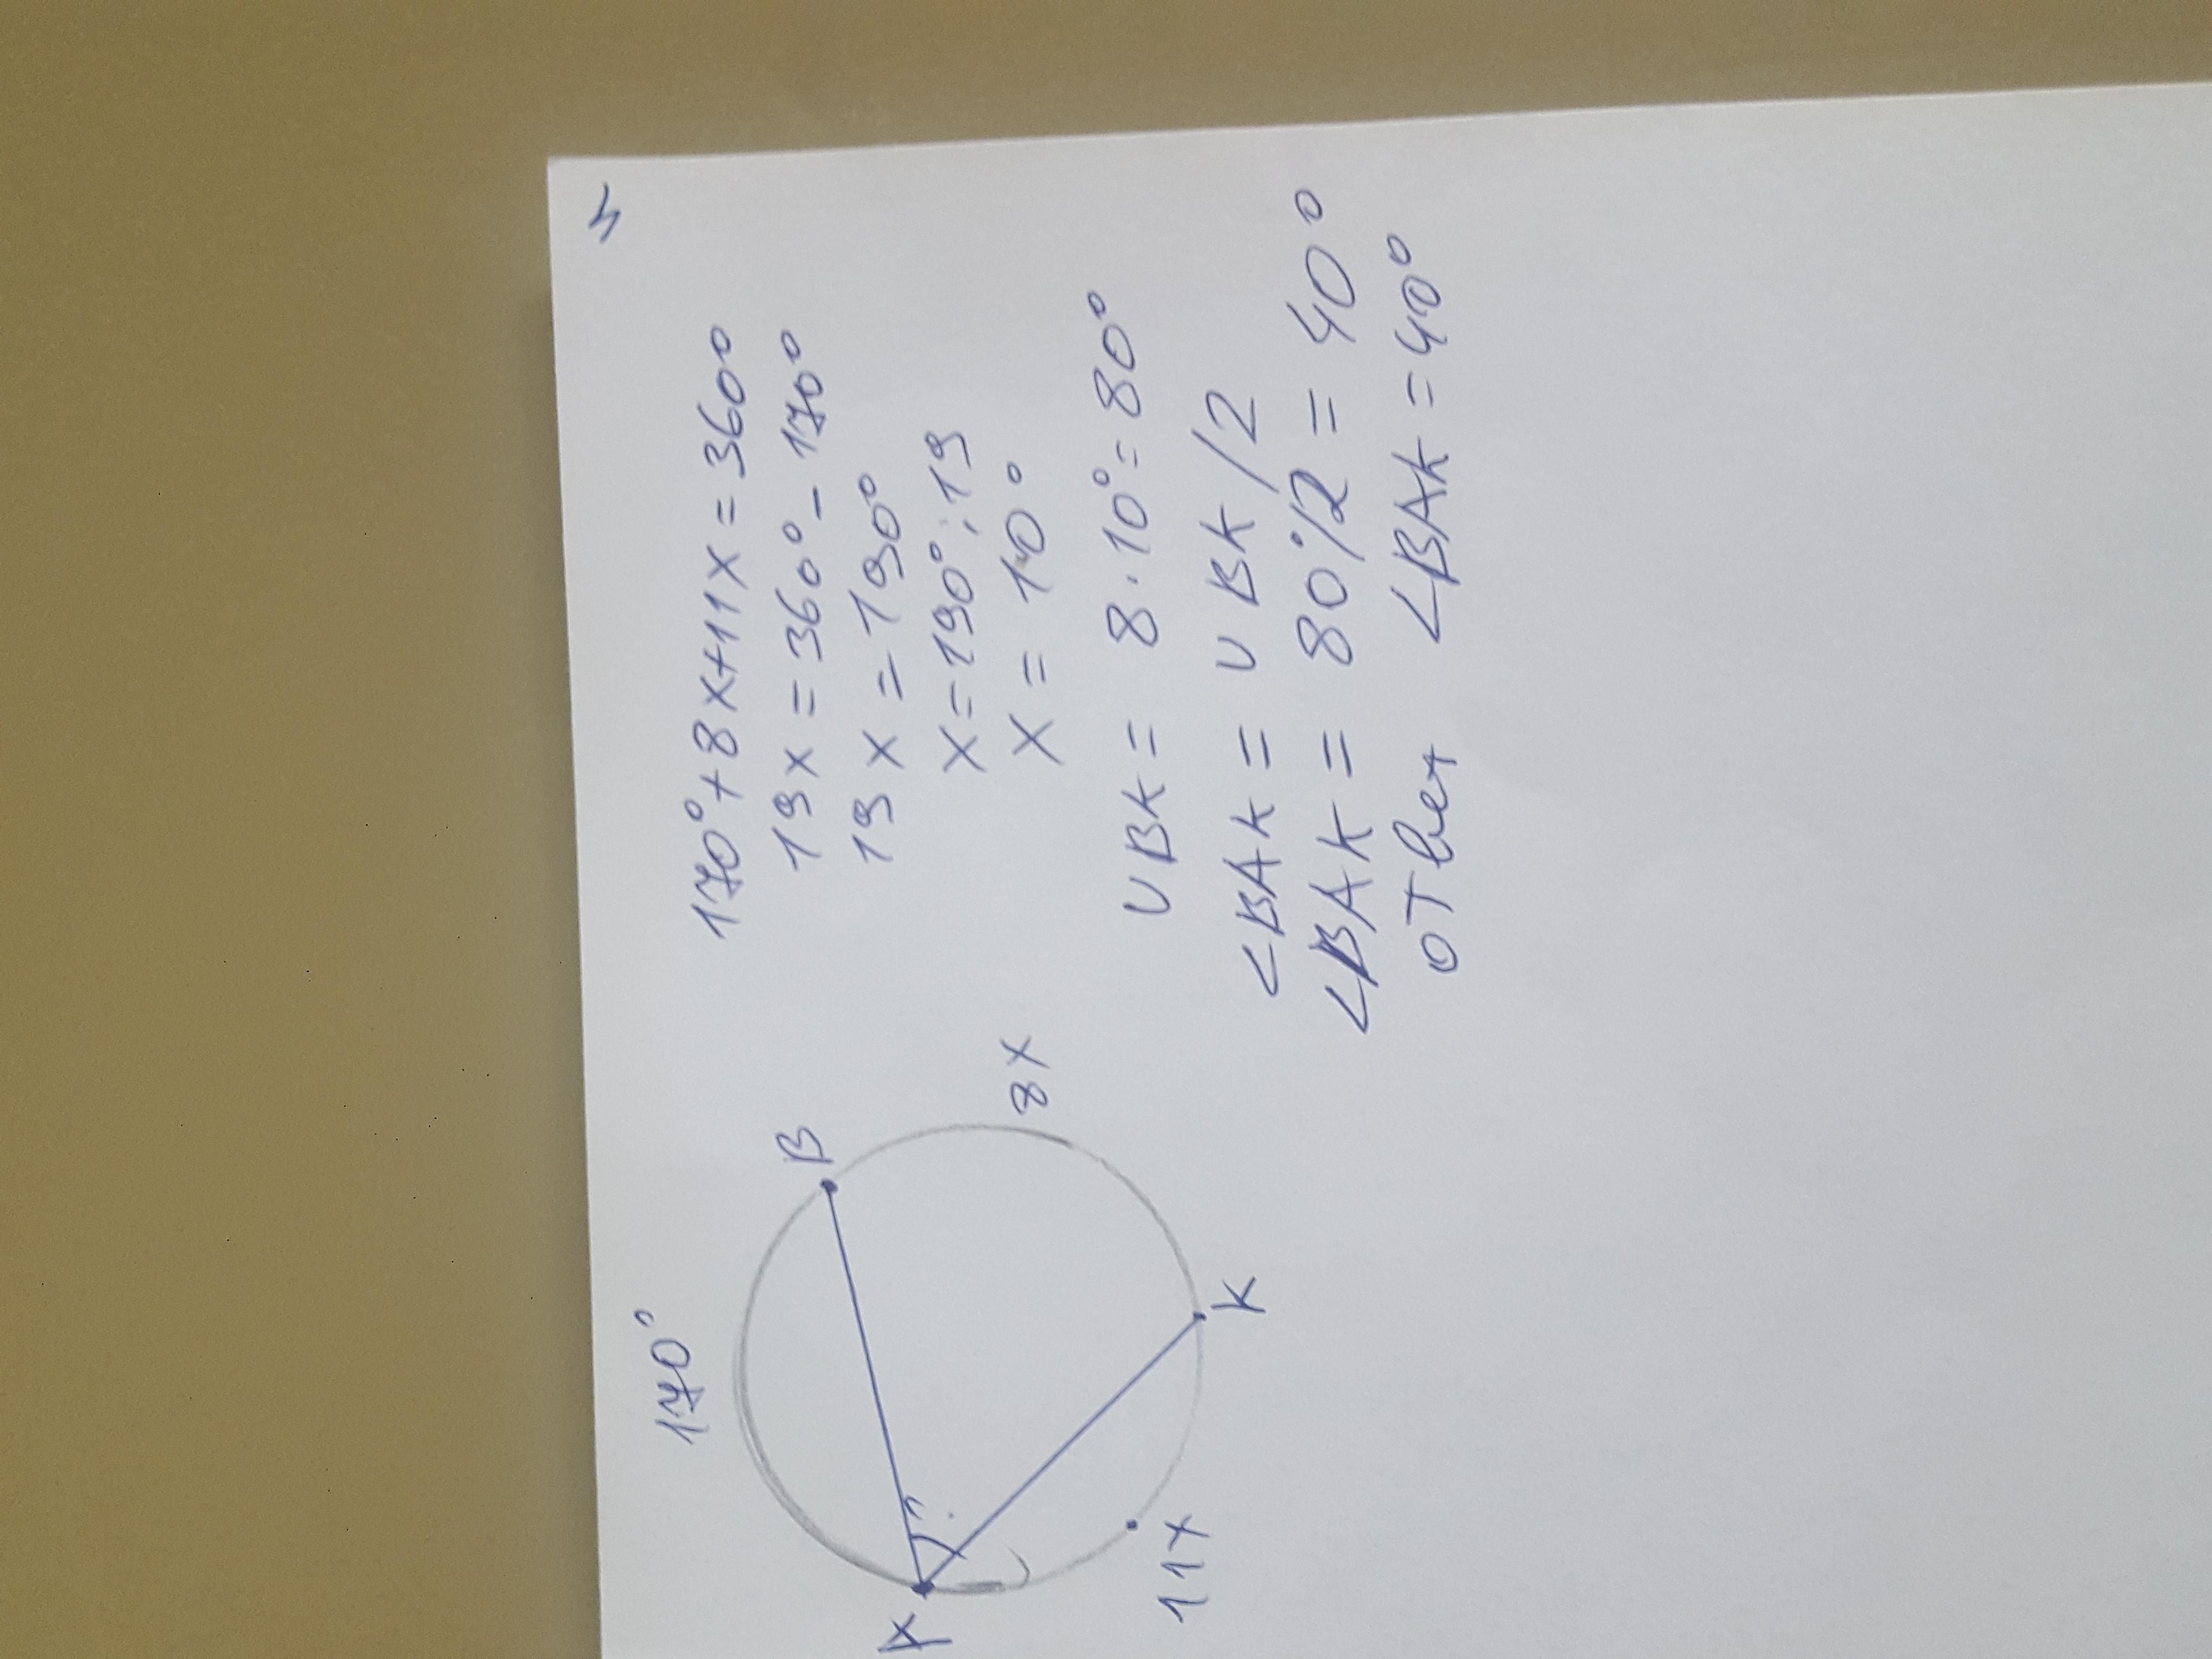 4
170°
A
B
8x
K
11x
?
170°+8x+11x=360°
19x=360°-170°
19x=190°
x=190°:19
x=10°
∪BK= 8·10°=80°
∠BAK= ∪BK/2
∠BAK= 80°/2=40°
ответ ∠BAK=40°